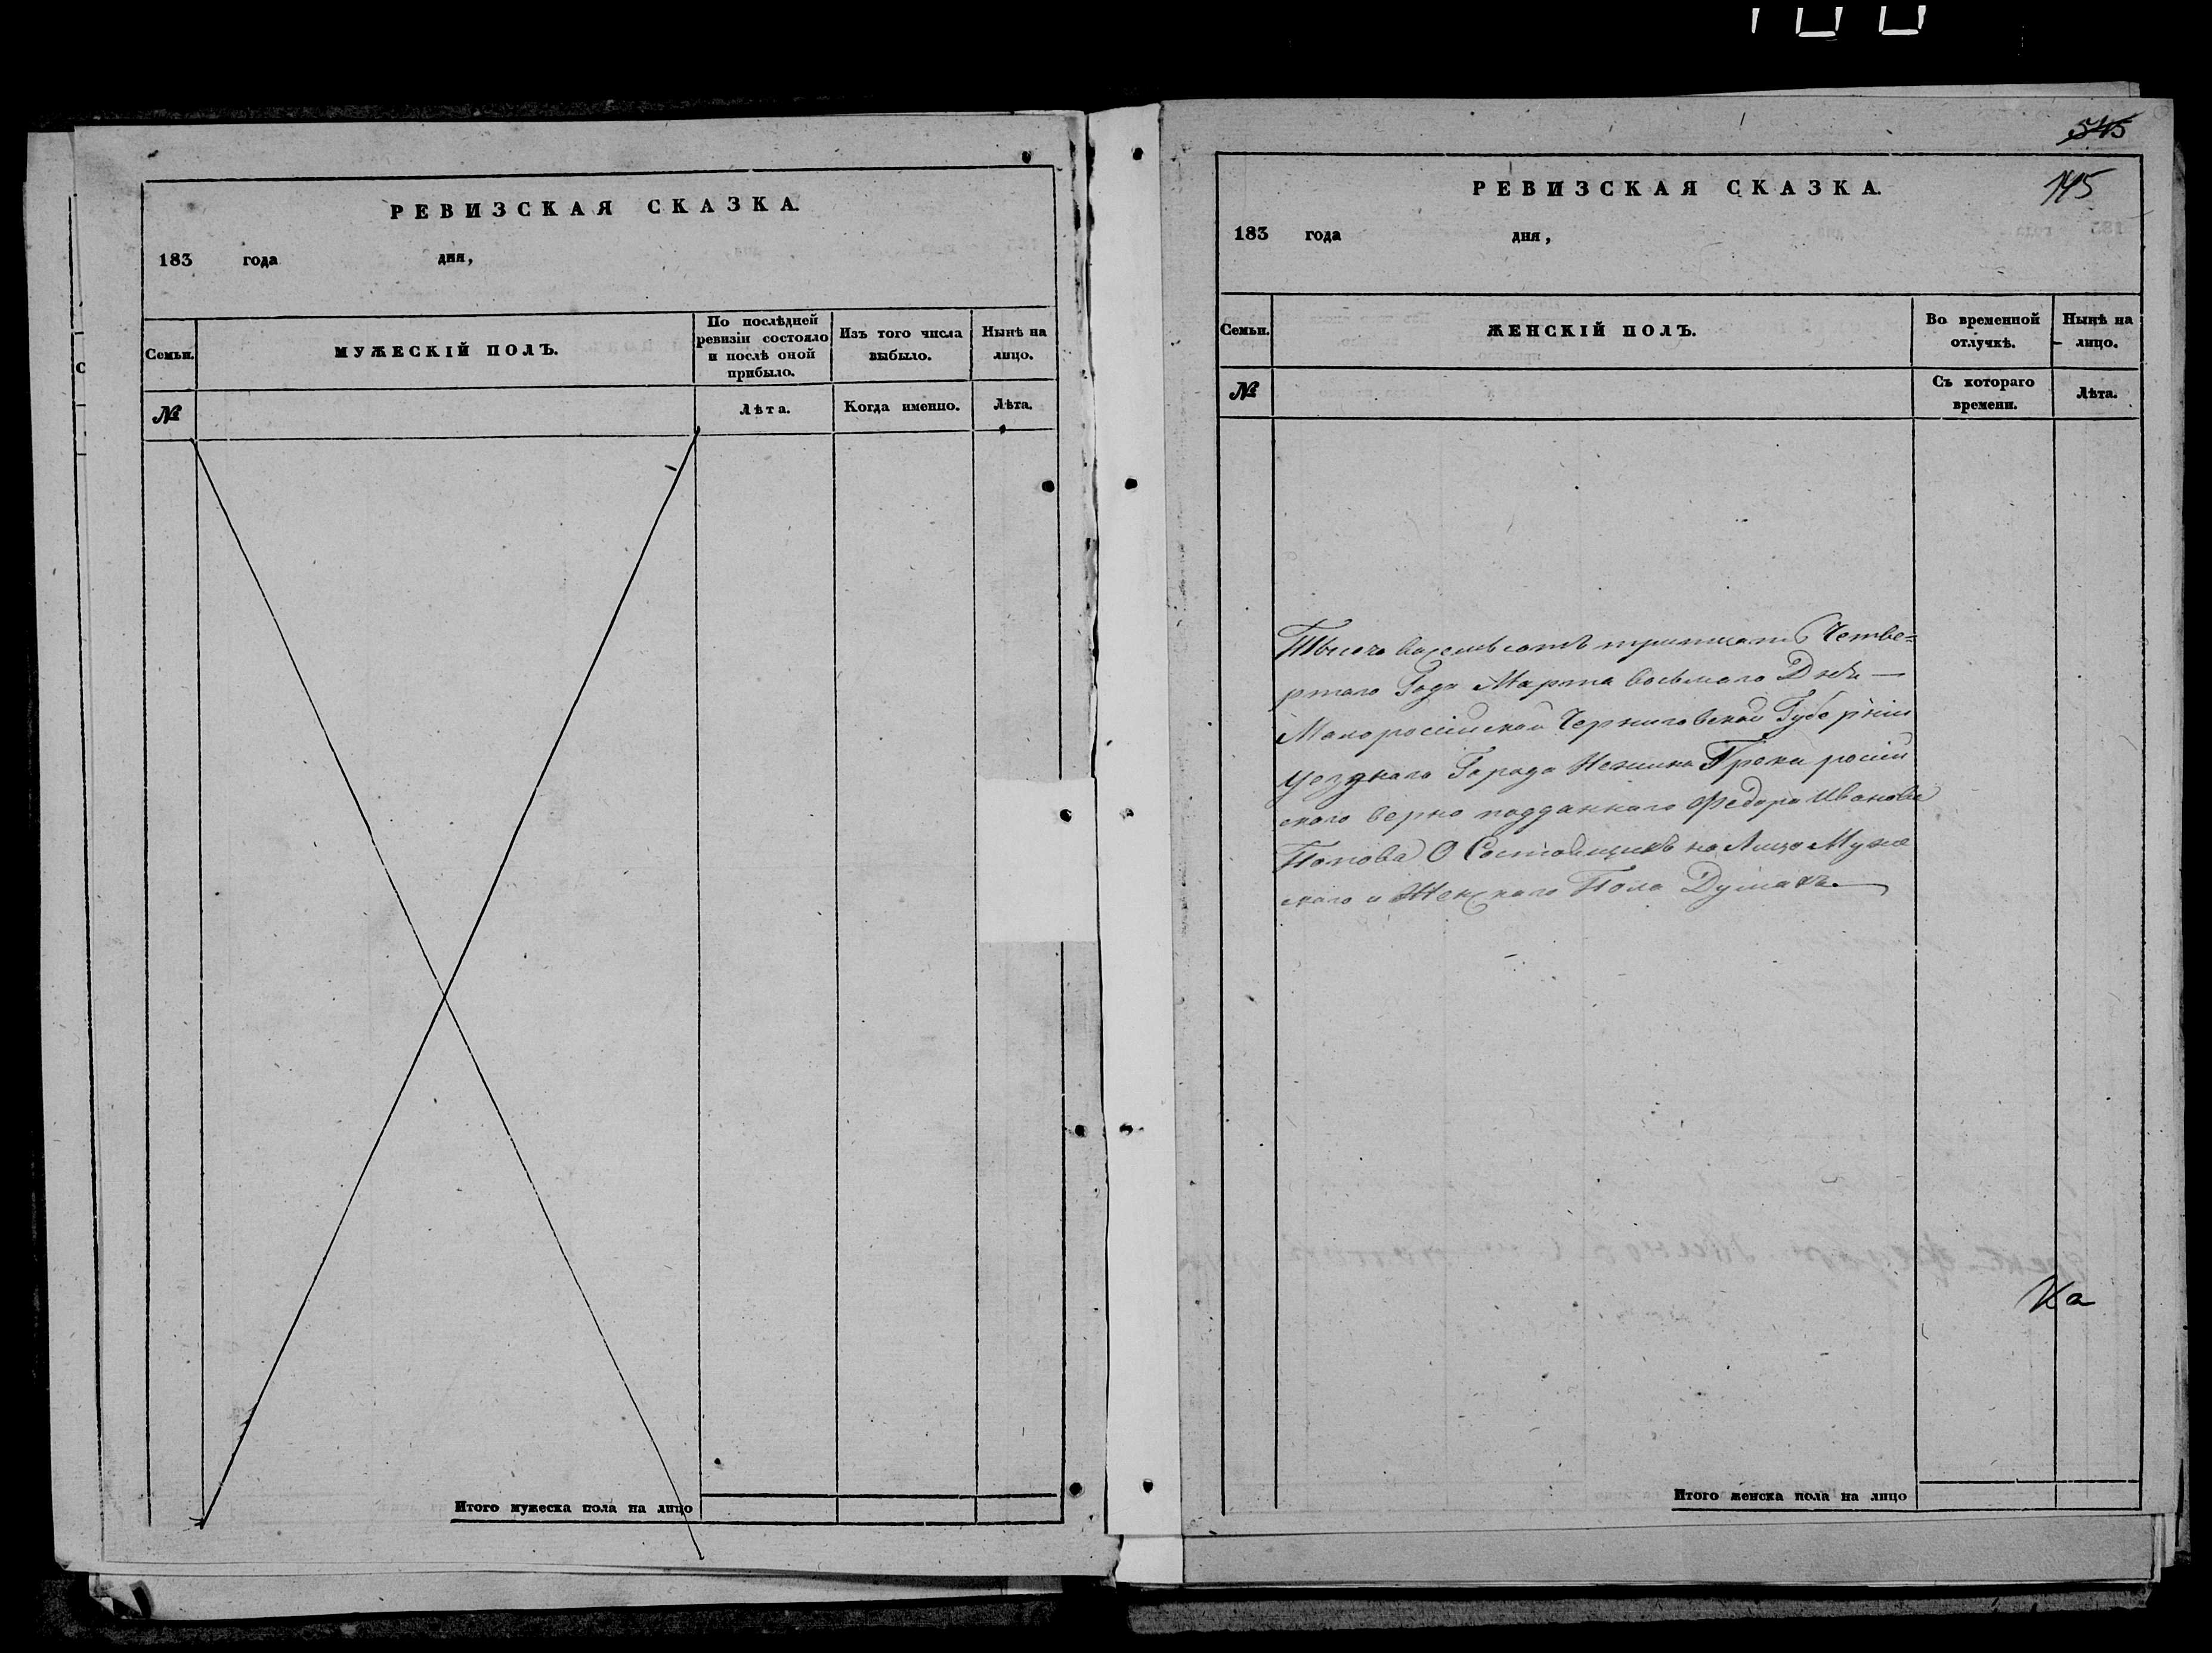 РЕВИЗСКАЯ СКАЗКА.
183 года дня,
Семьи.
МУЖЕСКІЙ ПОЛЪ.
По послѣдней ревизіи состояло и послѣ оной прибыло.
Изъ того числа выбыло.
Нынѣ на лицо.
№
Лѣта.
Когда именно.
Лѣта.
Итого мужеска пола на лицо
545
145
РЕВИЗСКАЯ СКАЗКА.
183 года дня,
Семьи.
ЖЕНСКІЙ ПОЛЪ.
Во временной отлучкѣ.
Нынѣ на лицо.
№
Съ котораго времени.
Лѣта.
Тысеча восемьсотъ тритцать Четве=
ртаго Года Марта восьмаго Дня —
Малоросійской Черниговской Губерніи
уезднаго Города Нежина Грека росій
скаго верно подданнаго Федора Иванова
Попова О Состоящихъ на Лицо Муже
скаго и Женскаго Пола Душахъ —
Ка
Итого женска пола на лицо